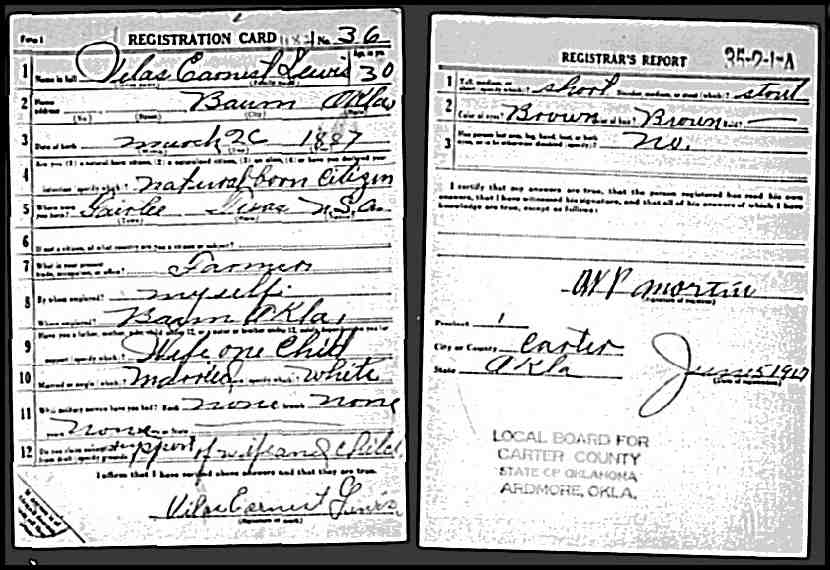 Form 1 REGISTRATION CARD No. 36
Age, in yrs.
1 Name in full Vilas Earnest Lewis 30
2 Home address Baum Okla
(No.) (Street) (City) (State)
3 Date of birth March 26 1887
4 Are you (1) a natural-born citizen, (2) a naturalized citizen, (3) an alien, (4) or have you declared your
intention (specify which)? natural born citizen
5 Where were you born? Fairlee Texas U.S.A.
6 If not a citizen, of what country are you a citizen or subject?
7 What is your present trade, occupation, or office? Farmer
8 By whom employed? myself
Where employed? Baum Okla,
9 Have you a father, mother, wife, child under 12, or a sister or brother under 12, solely dependent on you for
support (specify which)? Wife one Child
10 Married or single (which)? Married Race (specify which)? White
11 What military service have you had? Rank none branch none
years none
12 Do you claim exemption from draft (specify grounds)? support of wife and child
I affirm that I have verified above answers and that they are true.
Vilas Earnest Lewis
(Signature or mark)
35-2-1-A
REGISTRAR'S REPORT
1 Tall, medium, or short (specify which)? short Slender, medium, or stout (which)? stout
2 Color of eyes? Brown Color of hair? Brown Bald?
3 Has person lost arm, leg, hand, foot, or both
eyes, or is he otherwise disabled (specify)? No.
I certify that my answers are true, that the person registered has read his own
answers, that I have witnessed his signature, and that all of his answers of which I have
knowledge are true, except as follows:
W P Martin
(Signature of registrar)
Precinct 1
City or County Carter
State Okla
June 5 1917
(Date of registration)
LOCAL BOARD FOR
CARTER COUNTY
STATE OF OKLAHOMA
ARDMORE, OKLA.